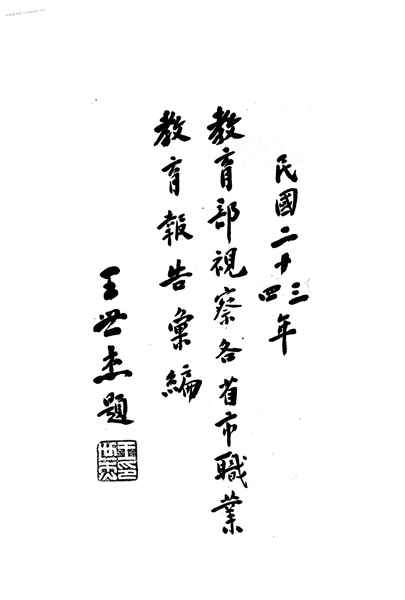 民國二十三四年
教育部視察各省市職業
教育報告彙編
王世杰題
王印世杰